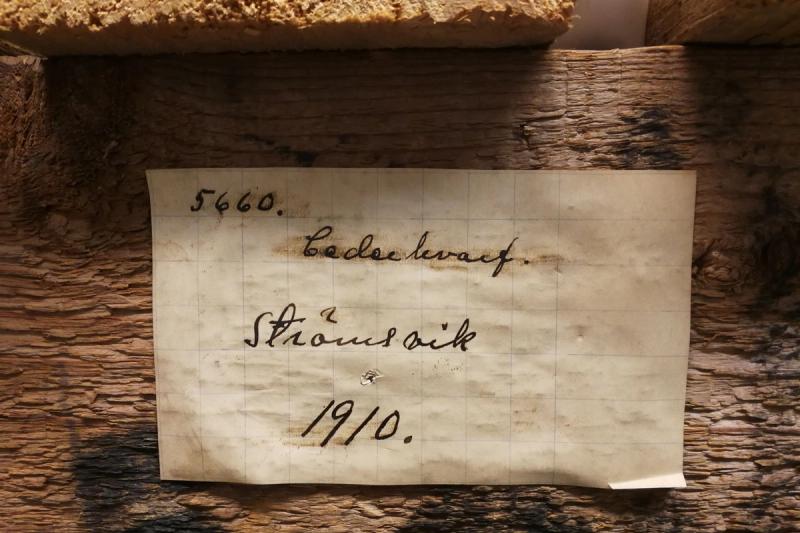 5660.
Cederhvarf.
Strömsvik
1910.